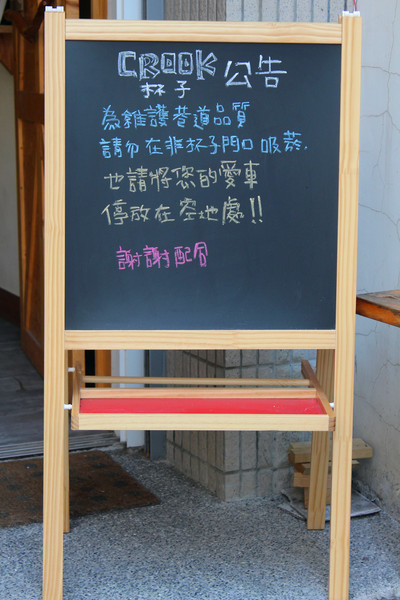 CROOK 公告
杯子
為維護巷道品質
請勿在非杯子門口吸菸.
也請將您的愛車
停放在空地處!!
謝謝配合